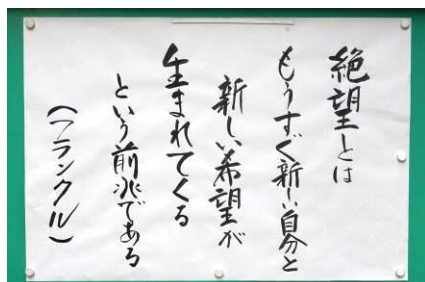 絶望とは
もうすぐ新しい自分と
新しい希望が
生まれてくる
という前兆である
(フランクル)